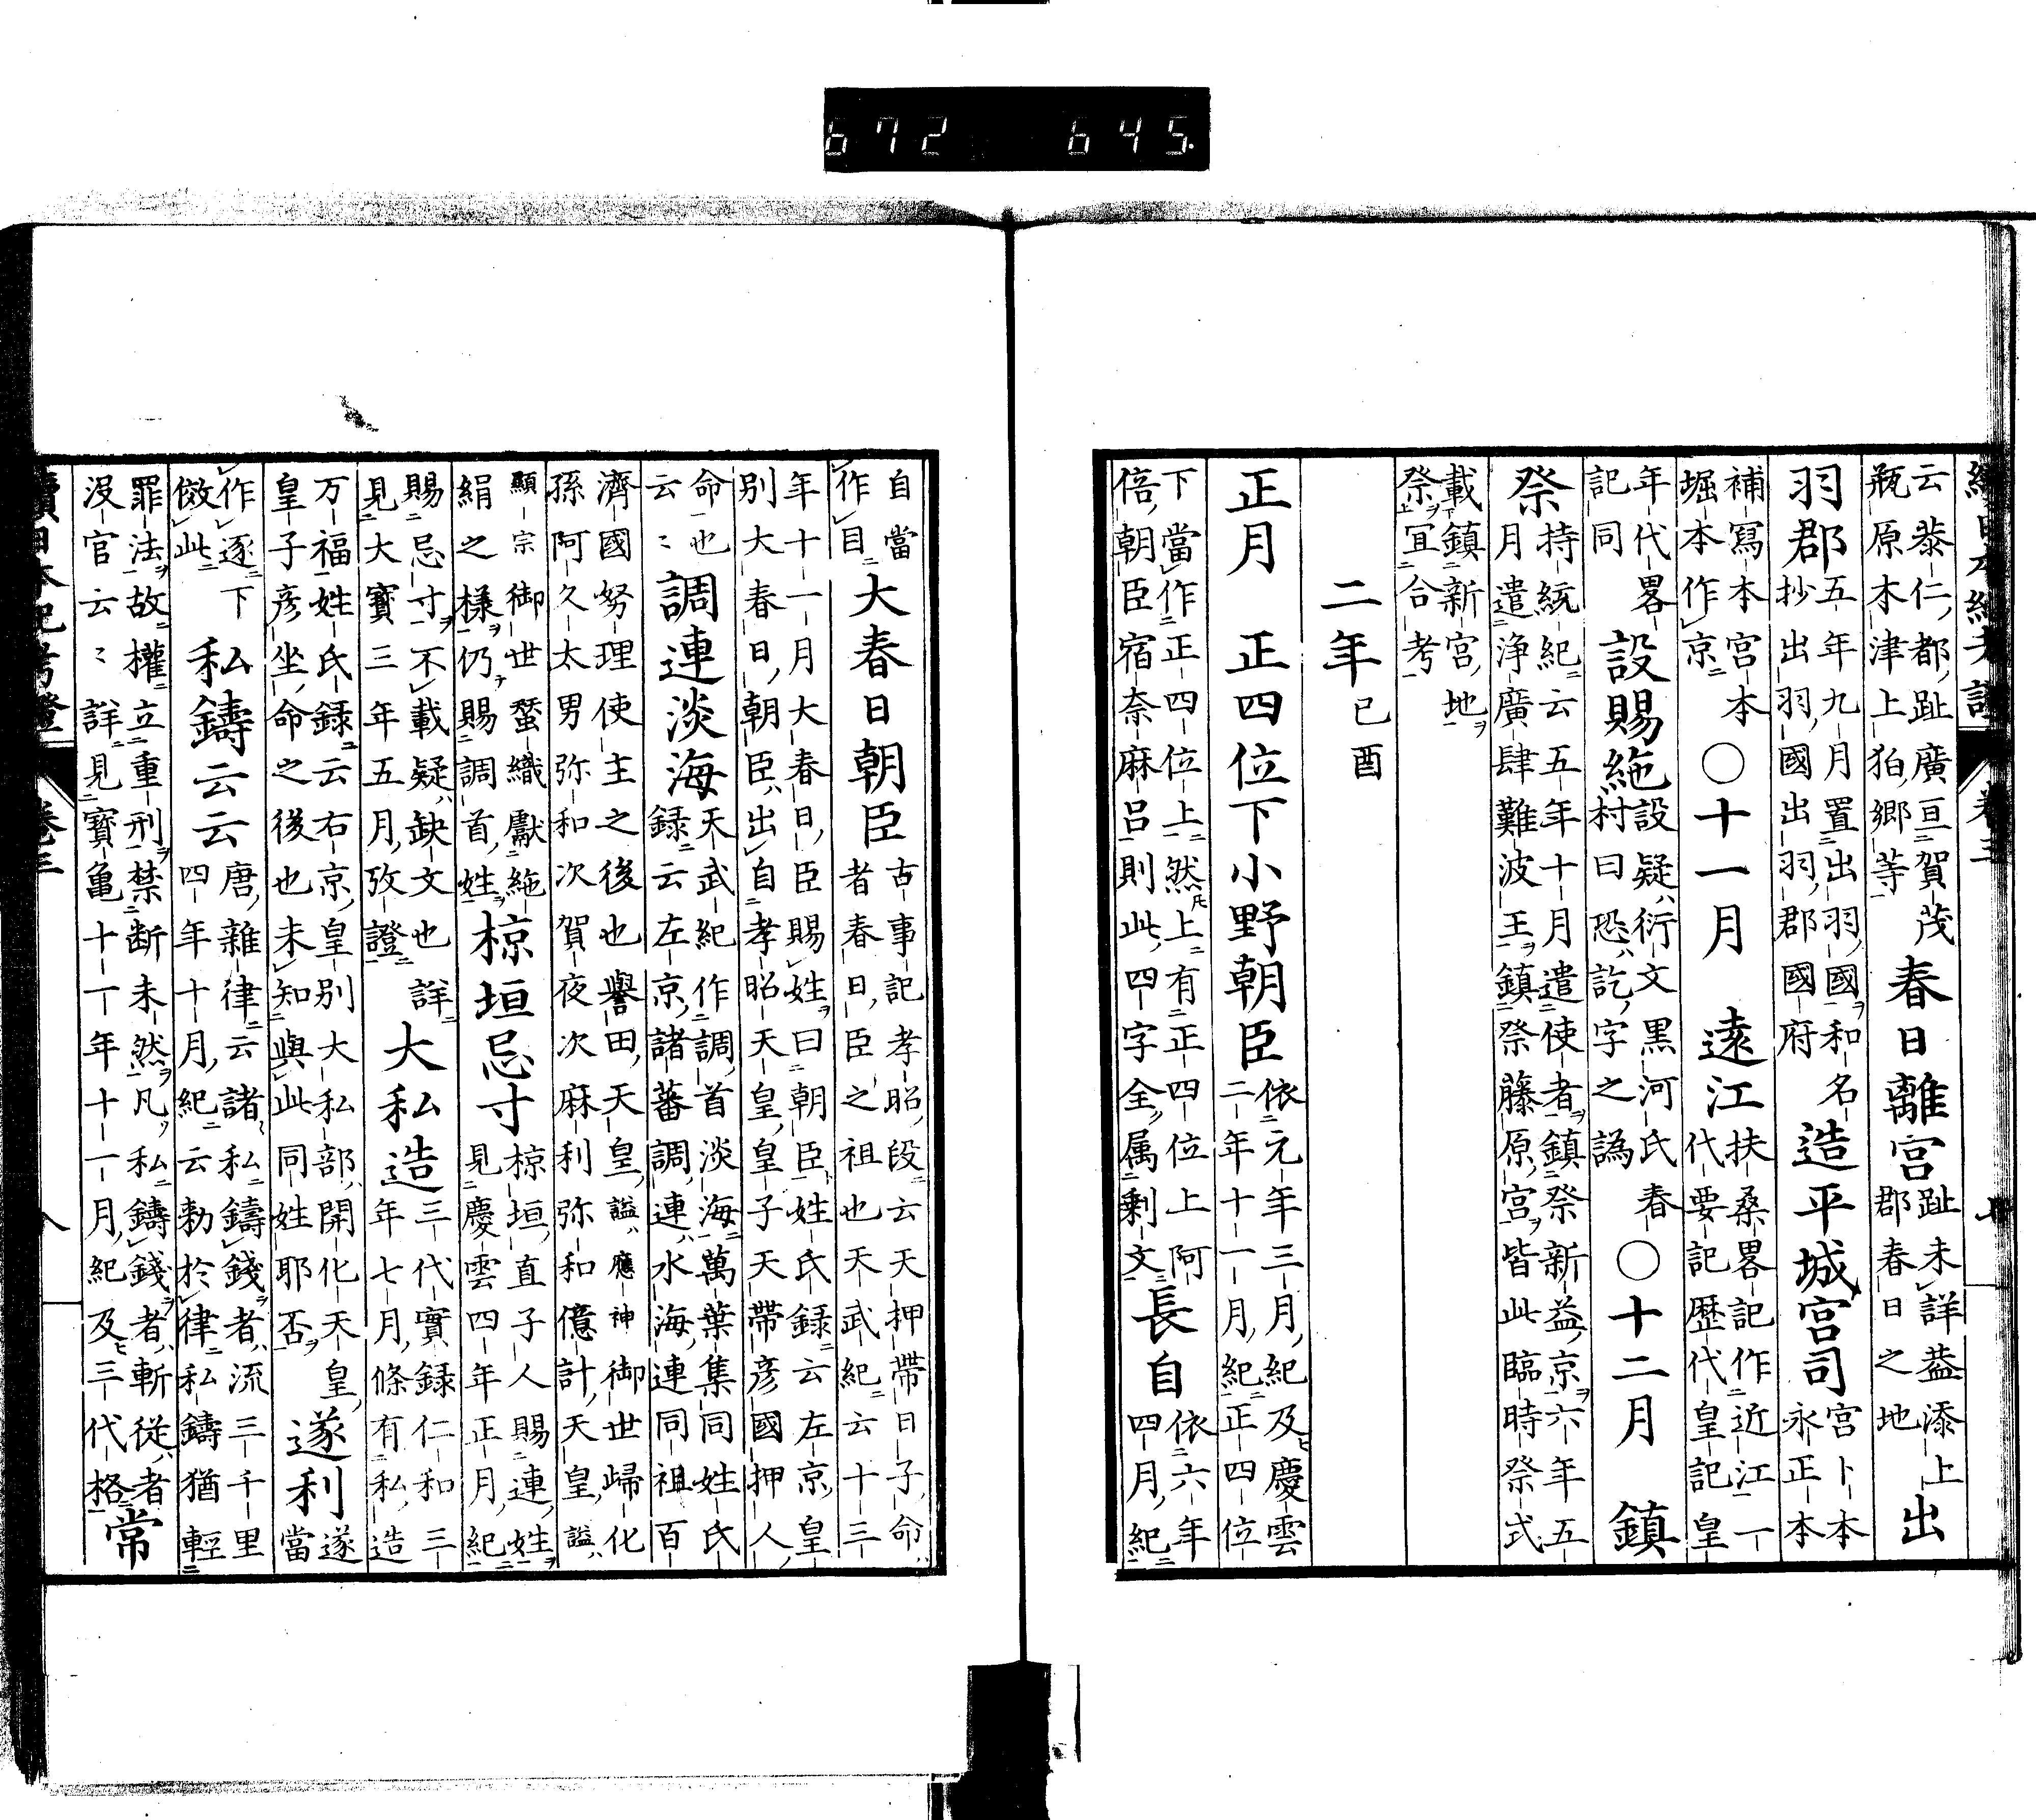 672 645.
云恭仁都趾廣亘賀茂
瓶原木津上狛郷等
春日離宮
趾未詳葢添上
郡春日之地
出
羽郡
五年九月置出羽國和名
抄出羽國出羽郡國府
造平城宮司
宮卜本
永正本
補寫本宮本
堀本作京
○十一月
遠江
扶桑畧記作近江一
代要記歴代皇記皇
年代畧
記同
設賜絁
設疑衍文黒河氏春
村曰恐訖字之譌
○十二月
鎮
祭
持統紀云五年十月遣使者鎮祭新益京六年五
月遣浄廣肆難波王鎮祭藤原宮皆此臨時祭式
載鎮新宮地
祭宜合考
二年
己酉
正月
正四位下小野朝臣
依元年三月紀及慶雲
二年十一月紀正四位
下當作正四位上然上有正四位上阿
倍朝臣宿奈麻呂則此四字全属剩文
長自
依六年
四月紀
自當
作目
大春日朝臣
古事記孝昭段云天押帶日子命
者春日臣之祖也天武紀云十三
年十一月大春日臣賜姓曰朝臣姓氏録云左京皇
別大春日朝臣出自孝昭天皇皇子天帶彦國押人
命也
云〻
調連淡海
天武紀作調首淡海萬葉集同姓氏
録云左京諸蕃調連水海連同祖百
濟國努理使主之後也譽田天皇謚應神御世歸化
孫阿久太男弥和次賀夜次麻利弥和億計天皇謚
顯宗御世蚕織獻絁
絹之様仍賜調首姓
椋垣忌寸
椋垣直子人賜連姓
見慶雲四年正月紀
賜忌寸不載疑缺文也詳
見大寶三年五月攷證
大私造
三代實録仁和三
年七月條有私造
万福姓氏録云右京皇別大私部開化天皇
皇子彦坐命之後也未知與此同姓耶否
遂利
遂當
作逐下
倣此
私鑄云云
唐雜律云諸私鑄錢者流三千里
四年十月紀云勅於律私鑄猶輕
罪法故權立重刑禁断未然凡私鑄錢者斬從者
没官云〻詳見寶亀十一年十一月紀及三代格
常
續日本紀考證
卷三
八